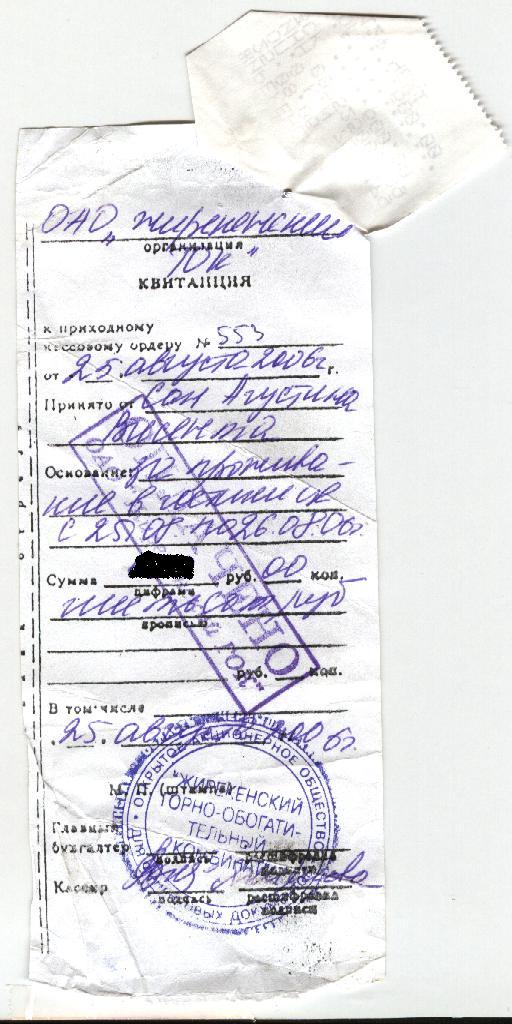 ОАО "Жирекенский
организация
ГОК"
КВИТАНЦИЯ
к приходному
кассовому ордеру № 553
от 25. августа 2006г. г.
Принято от Сан Агустина
Висента
Основание: за прожива-
ние в гостинице
с 25.08. по 26.08.06г.
Сумма руб. 00 коп.
цифрами
шестьсот руб
прописью
руб. коп.
В том числе
25 августа 2006г.
М. П. (штампа)
Главный
бухгалтер
подпись расшифровка
подписи
Кассир
подпись расшифровка
подписи
ОТКРЫТОЕ АКЦИОНЕРНОЕ ОБЩЕСТВО
"ЖИРЕКЕНСКИЙ
ГОРНО-ОБОГАТИ-
ТЕЛЬНЫЙ
КОМБИНАТ"